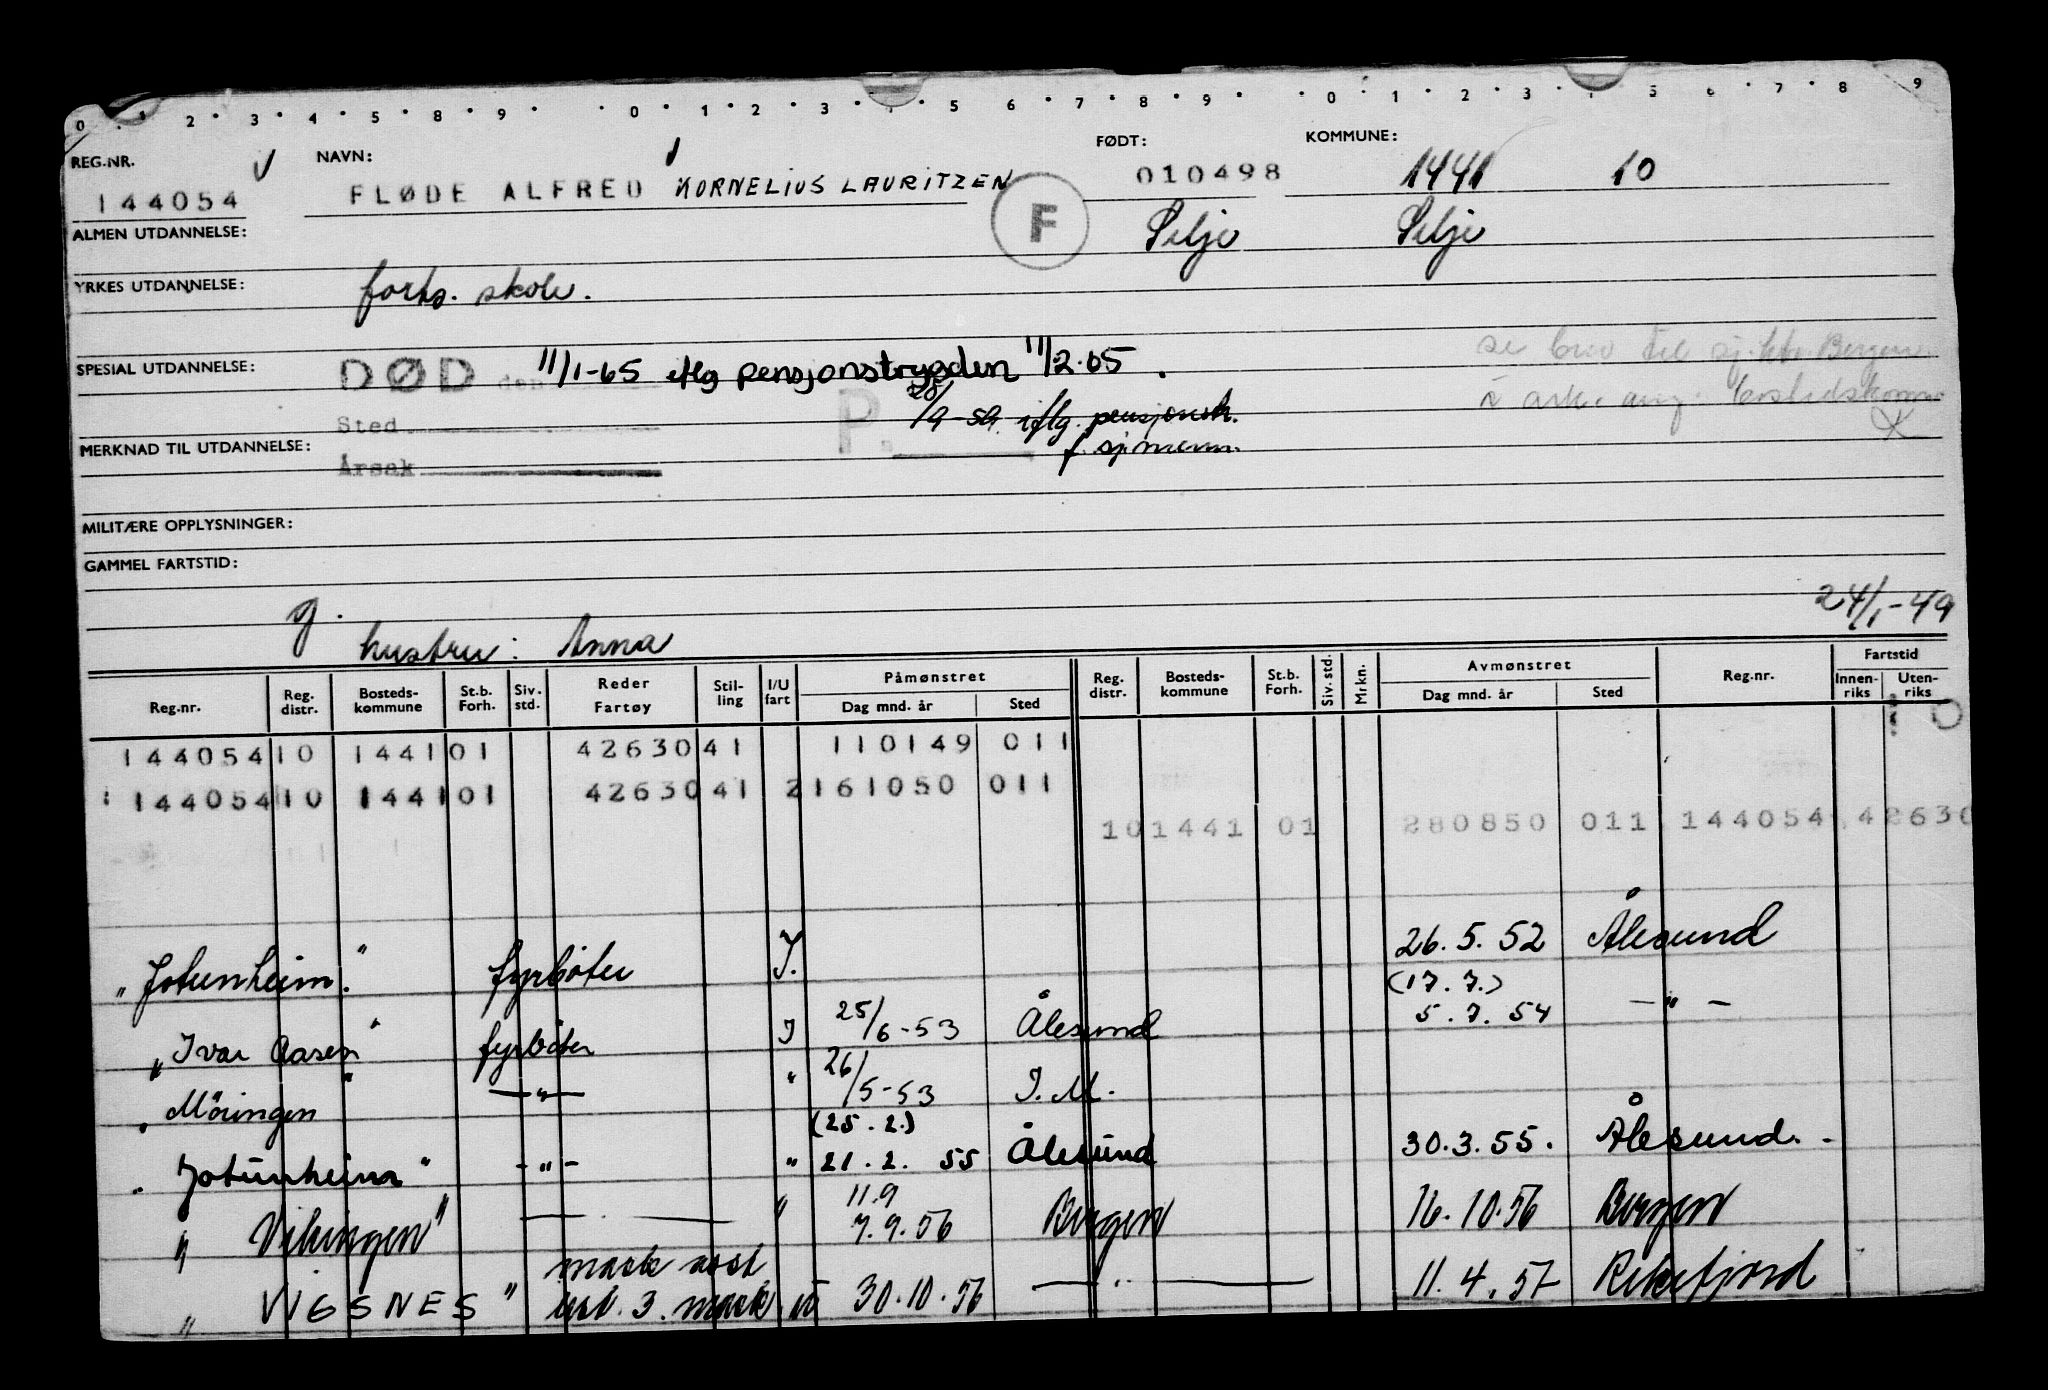 0 1 2 3 4 5 8 9 0 1 2 3 5 6 7 8 9 0 1 2 3 5 6 7 8 9
REG.NR. NAVN: FØDT: KOMMUNE:
144054 FLØDE ALFRED KORNELIUS LAURITZEN 010498 1441 10
F
ALMEN UTDANNELSE: Selje Selje
YRKES UTDANNELSE: forts. skole.
SPESIAL UTDANNELSE: DØD den 11/1-65 iflg pensjonstrygden 11/2.65.
se brev til sj.ktr. Bergen
Sted P. 9-59 iflg. pensjonstr.
i ark. ang.
MERKNAD TIL UTDANNELSE: f. sjømenn.
Årsak
MILITÆRE OPPLYSNINGER:
GAMMEL FARTSTID:
g. 24/1-49
hustru: Anna
Reg.nr. Reg. distr. Bosteds-kommune St.b. Forh. Siv. std. Reder Fartøy Stil-ling I/U fart Påmønstret Dag mnd. år Sted Reg. distr. Bosteds-kommune St.b. Forh. Siv. std. Mrkn. Avmønstret Dag mnd. år Sted Reg.nr. Fartstid Innen-riks Uten-riks
144054 10 1441 01 42630 41 110149 011
144054 10 1441 01 42630 41 2 161050 011
10 1441 01 280850 011 144054 42630
"Jotunheim." fyrbøter I. 26.5.52 Ålesund
(17.7.)
"Ivar Aasen" fyrbøter I 25/6-53 Ålesund 5.7.54 -"-
"Möringen" -"- " 26/5-53 I.M.
(25.2.)
"Jotunheim" -"- " 21.2.55 Ålesund 30.3.55. Ålesund.
11.9
"Vikingen" " 7.9.56 Bergen 16.10.56 Bergen
mask asst
"VIGSNES" utd. 3. mask. U 30.10.56 -"- 11.4.57 Rekefjord